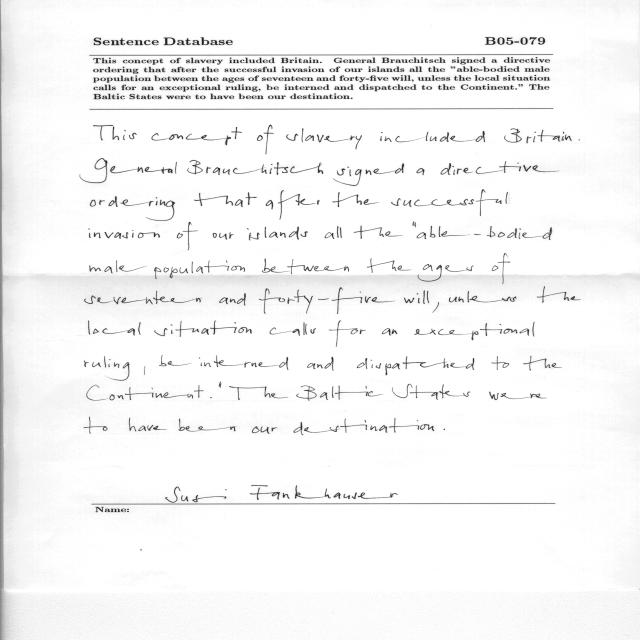 Sentence Database B05-079
This concept of slavery included Britain. General Brauchitsch signed a directive
ordering that after the successful invasion of our islands all the "able-bodied male
population between the ages of seventeen and forty-five will, unless the local situation
calls for an exceptional ruling, be interned and dispatched to the Continent." The
Baltic States were to have been our destination.
This concept of slavery included Britain.
General Brauchitsch signed a directive
ordering that after the successful
invasion of our islands all the "able-bodied
male population between the ages of
seventeen and forty-five will, unless the
local situation calls for an exceptional
ruling, be interned and dispatched to the
Continent." The Baltic States were
to have been our destination.
Susi Fankhauser
Name: